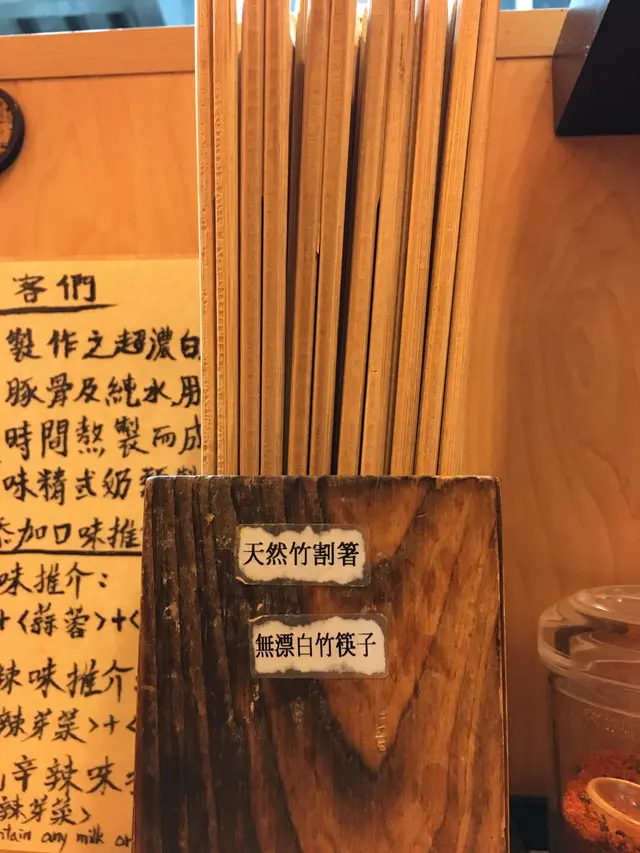 客們
製作之超濃白
豚骨及純水用
時間熬製而成
味精或奶類製
添加口味推
味推介:
+<蒜蓉>+<
辣味推介:
辣芽菜>+<
辛辣味
辣芽菜>
ntain any milk or
天然竹割箸
無漂白竹筷子